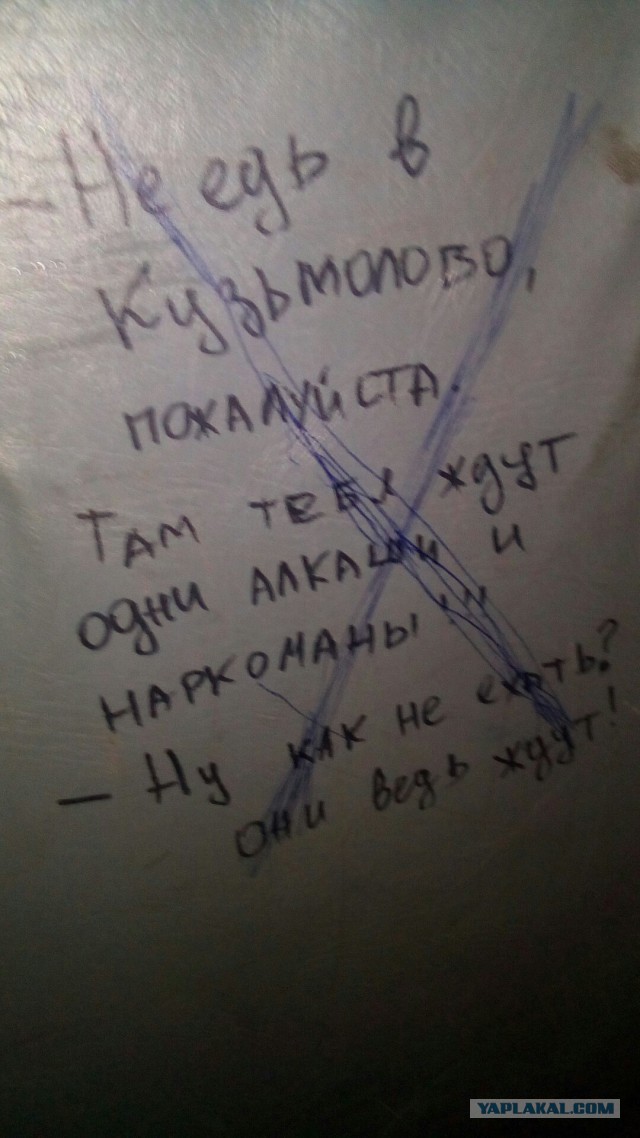 - Не едь в
Кузьмолово,
пожалуйста.
Там тебя ждут
одни алкаши и
наркоманы!!!
- Ну как не ехать?
они ведь ждут!
YAPLAKAL.COM